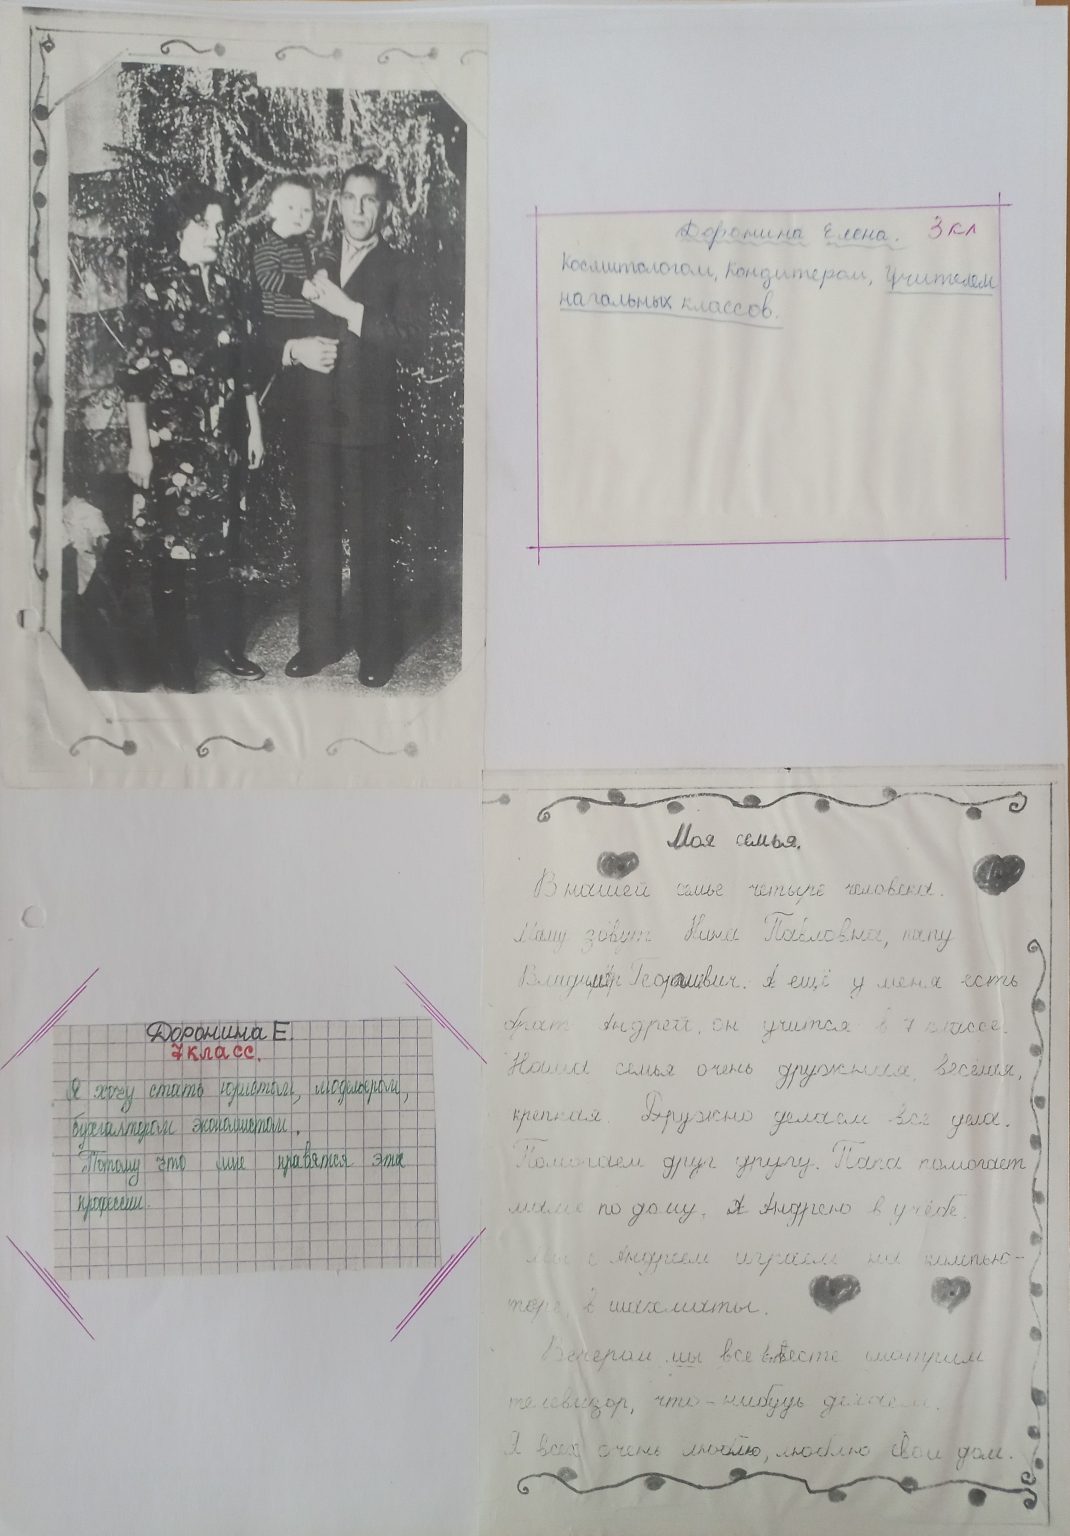 Доронина Елена. 3 кл
Косметологом, Кондитером, Учителем
начальных классов.
Доронина Е.
7 класс.
Я хочу стать юристом, модельером,
бухгалтером экономистом.
Потому что мне нравятся эти
профессии.
Моя семья.
В нашей семье четыре человека.
Маму зовут Нина Павловна, папу
Владимир Георгиевич. А ещё у меня есть
брат Андрей, он учится в 7 классе.
Наша семья очень дружная, весёлая,
крепкая. Дружно делаем все дела.
Помогаем друг другу. Папа помогает
маме по дому. А Андрею в учёбе.
Мы с Андреем играем на компью-
торе, в шахматы.
Вечером мы все вместе смотрим
телевизор, что-нибудь делаем.
Я всех очень люблю, люблю свой дом.